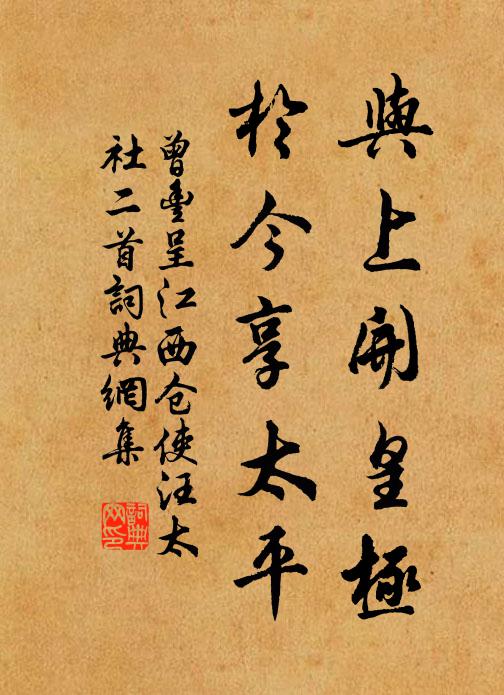 與上開皇極
於今享太平
曾豐呈江西仓使汪太
社二首詞典網集
詞典网印